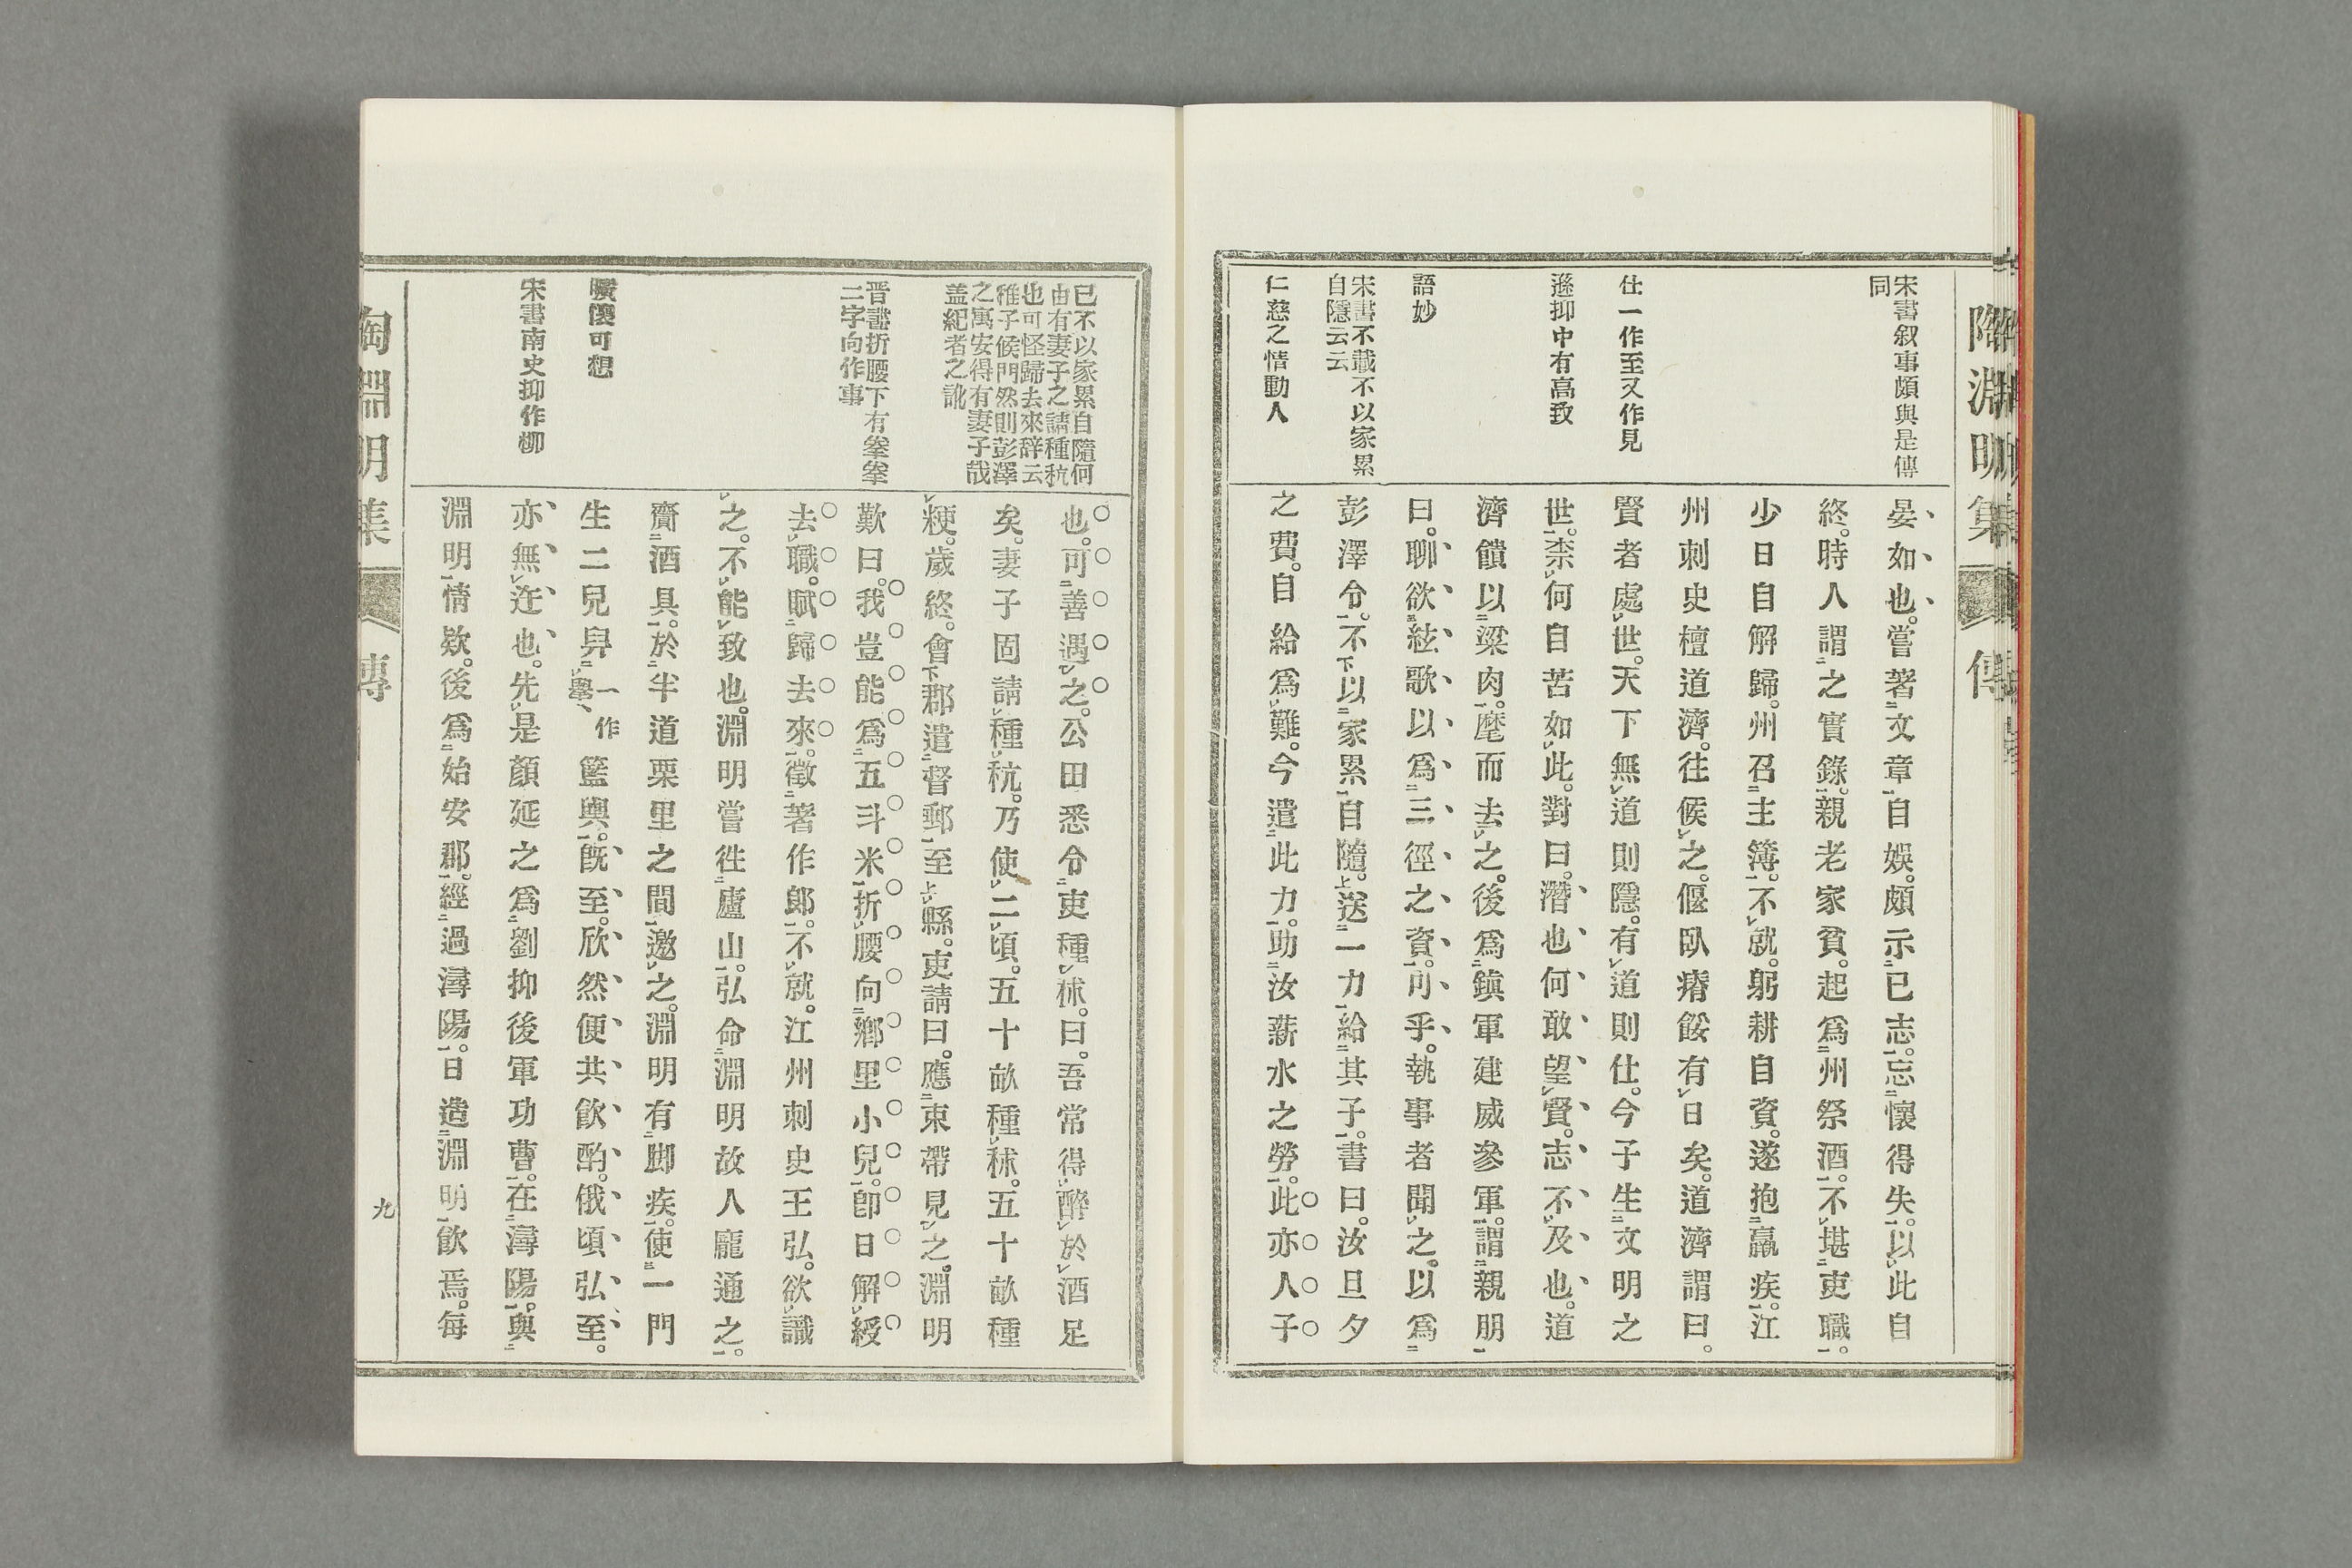 陶淵明集 傳
宋書叙事頗與是傳
同
仕一作至又作見
遜抑中有高致
語妙
宋書不載不以家累
自隱云云
仁慈之情動人
晏如也。嘗著文章自娛。頗示已志。忘懷得失。以此自
終。時人謂之實錄。親老家貧。起爲州祭酒。不堪吏職。
少日自解歸。州召主簿。不就。躬耕自資。遂抱羸疾。江
州刺史檀道濟。往候之。偃臥瘠餒有日矣。道濟謂曰。
賢者處世。天下無道則隱。有道則仕。今子生文明之
世。柰何自苦如此。對曰。潛也何敢望賢。志不及也。道
濟饋以粱肉。麾而去之。後爲鎭軍建威參軍。謂親朋
曰。聊欲絃歌以爲三徑之資。可乎。執事者聞之。以爲
彭澤令。不以家累自隨。送一力給其子。書曰。汝旦夕
之費。自給爲難。今遣此力。助汝薪水之勞。此亦人子
已不以家累自隨何
由有妻子之請種秔
也可怪歸去來辞云
稚子候門然則彭澤
之寓安得有妻子哉
盖紀者之訛
晋書折腰下有拳拳
二字向作事
曠懷可想
宋書南史抑作柳
也。可善遇之。公田悉令吏種秫。曰。吾常得醉於酒足
矣。妻子固請種秔。乃使二頃。五十畝種秫。五十畝種
粳。歲終。會郡遣督郵至縣。吏請曰。應束帶見之。淵明
歎曰。我豈能爲五斗米折腰向鄕里小兒。卽日解綬
去職。賦歸去來。徵著作郞。不就。江州刺史王弘。欲識
之。不能致也。淵明嘗徃廬山。弘命淵明故人龐通之。
齎酒具。於半道栗里之間邀之。淵明有脚疾。使一門
生二兒舁一作轝籃輿。旣至。欣然便共飮酌。俄頃弘至。
亦無迕也。先是顏延之爲劉抑後軍功曹。在潯陽。與
淵明情欵。後爲始安郡。經過潯陽。日造淵明飮焉。每
陶淵明集 傳 九